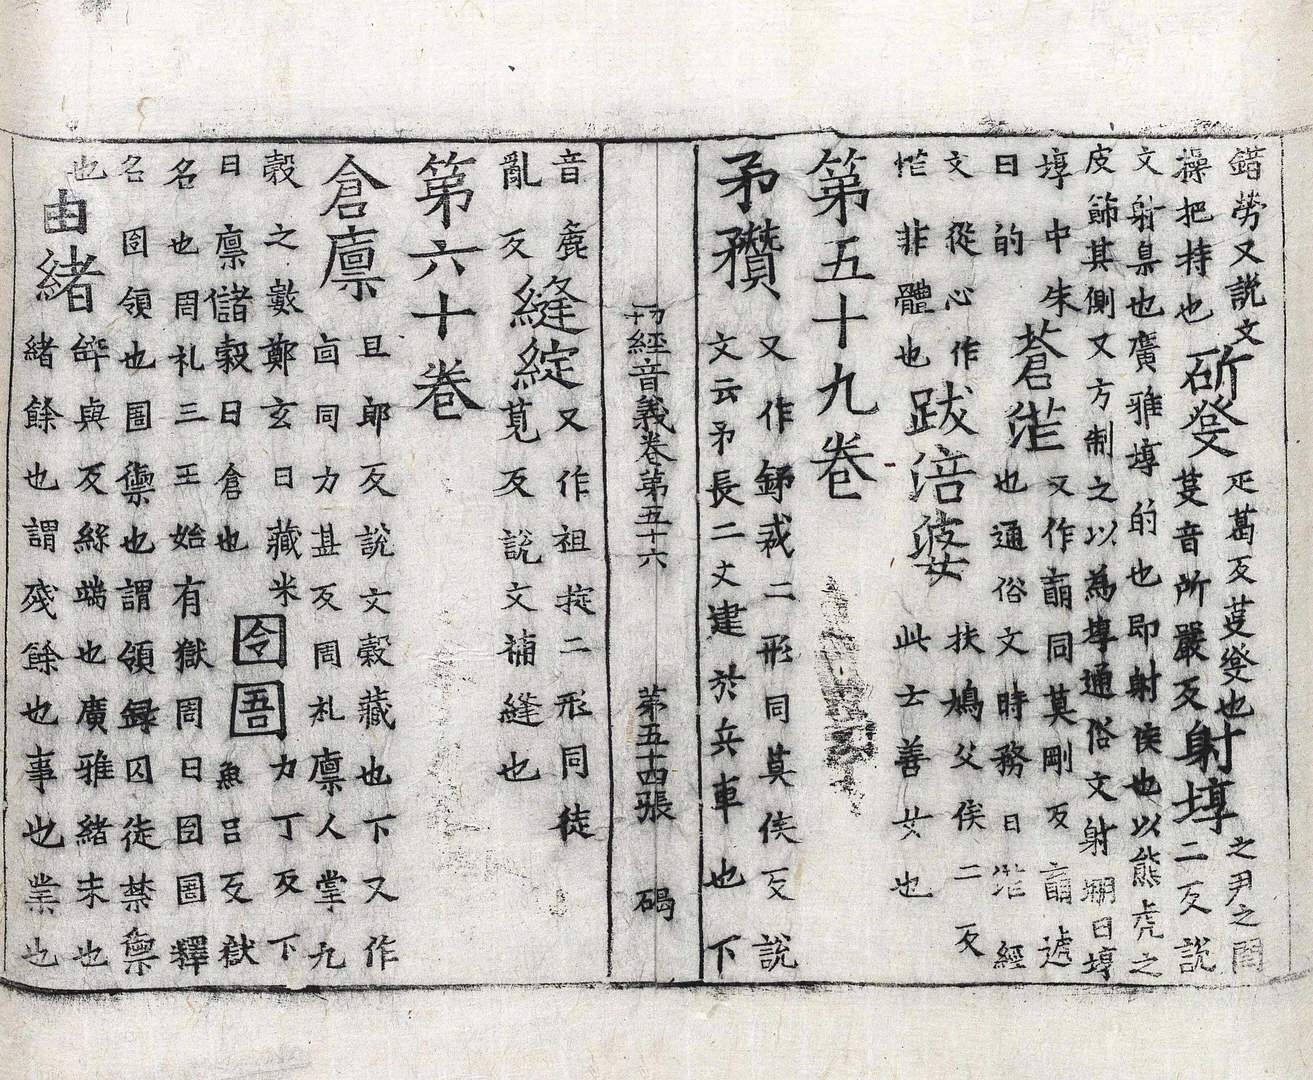 錯勞又說文
操把持也
斫癹
疋葛反芟癹也
芟音所嚴反
射埻
之尹之閏
二反說
文射臬也廣雅埻的也即射侯也以熊虎之
皮節其側又方制之以為埻通俗文射堋曰埻
埻中朱
曰的
蒼茫
又作𧧢同莫剛反𧧢遽
也通俗文時務曰茫經
文從心作
恾非體也
跋涪婆
扶鳩父侯二反
此云善女也
第五十九卷
矛䂎
又作鉾𢦧二形同莫侯反說
文云矛長二丈建於兵車也下
一切經音義卷第五十六 第五十四張 碣
音麁
亂反
縫綻
又作袒㨃二形同徒
莧反說文補縫也
第六十卷
倉廩
且郎反說文穀藏也下又作
㐭同力甚反周礼廩人掌九
穀之數鄭玄曰藏米
曰廩儲穀曰倉也
囹圄
力丁反下
魚呂反獄
名也周礼三王始有獄周曰囹圄釋
名囹領也圄禦也謂領録囚徒禁禦
也
由緒
辝與反絲端也廣雅緒末也
緒餘也謂殘餘也事也業也